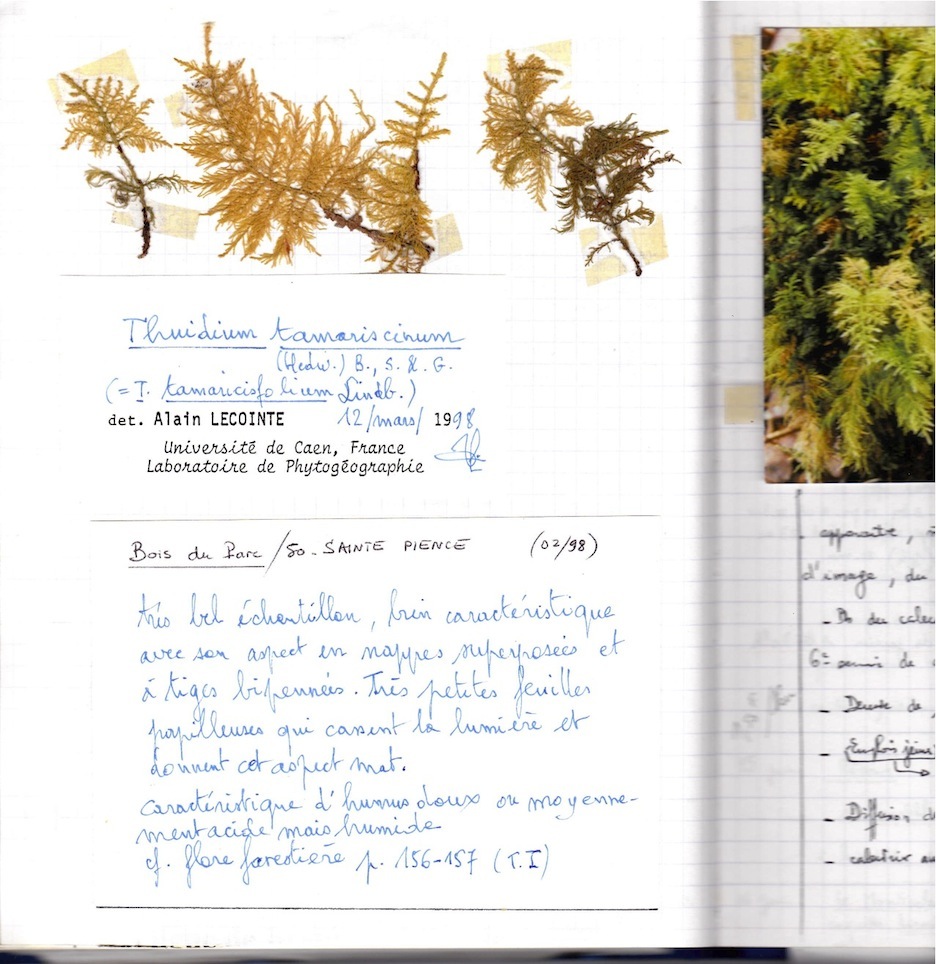 Thuidium tamariscinum
(Hedw.) B., S. & G.
(= T. tamaricisfolium Lindb.)
det. Alain LECOINTE 12/mars/ 1998
Université de Caen, France
Laboratoire de Phytogéographie
Bois du Parc / 50 - SAINTE PIENCE (02/98)
très bel échantillon, bien caractéristique
avec son aspect en nappes superposées et
à tiges bipennées. Très petites feuilles
papilleuses qui cassent la lumière et
donnent cet aspect mat.
caractéristique d'humus doux ou moyenne-
ment acide mais humide
cf. flore forestière p. 156-157 (T.I)
apparaître,
d'image, du
6e
- 
- Diffusion